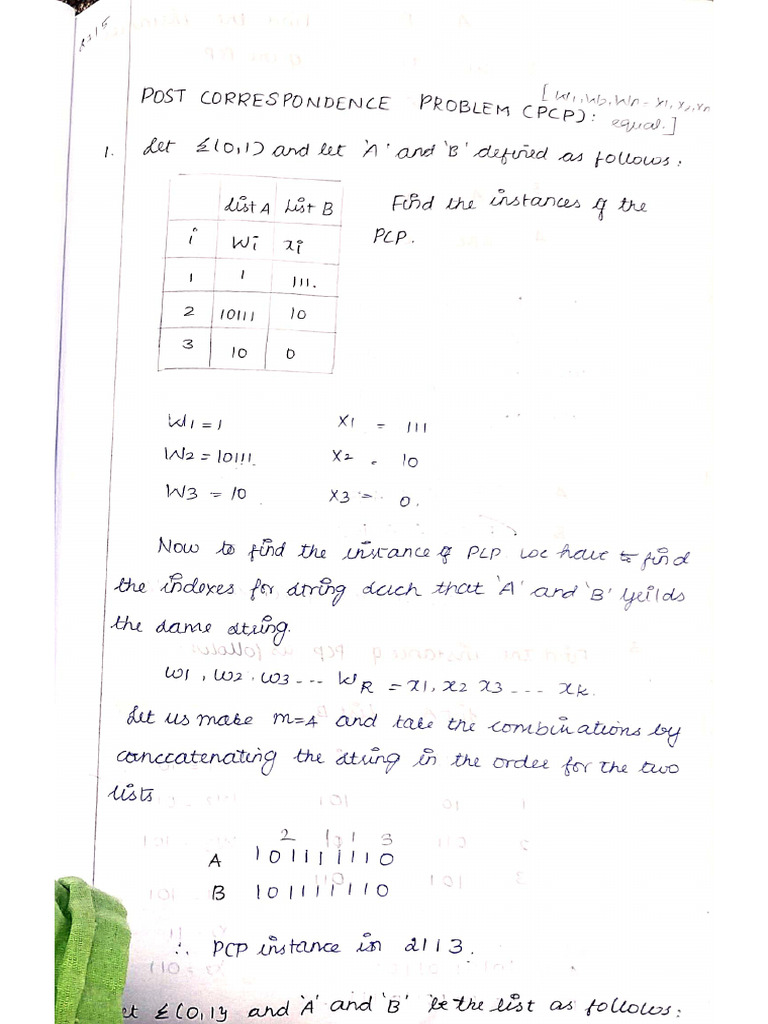 [W1, W2, Wn - x1, x2, xn
POST CORRESPONDENCE PROBLEM (PCP): equal.]
1. Let Σ(0,1) and let 'A' and 'B' defined as follows:
List A List B
i Wi xi
1 1 111.
2 10111 10
3 10 0
Find the instances of the
PCP.
W1 = 1 X1 = 111
W2 = 10111. X2 = 10
W3 = 10 X3 = 0.
Now to find the instance of PCP we have to find
the indexes for string such that 'A' and 'B' yeilds
the same string.
W1, W2. W3 --- WR = x1, x2 x3 --- xk.
Let us make m=A and take the combinations by
conccatenating the string in the order for the two
lists
2 1 1 3
A 101111110
B 101111110
∴ PCP instance in 2113.
et Σ(0,1} and 'A' and 'B' be the list as follows: